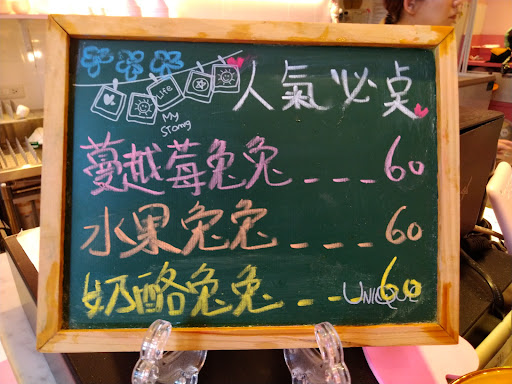 人氣必桌
Life
My
Story
蔓越莓兔兔---60
水果兔兔---60
奶酪兔兔---60
UNIQUE